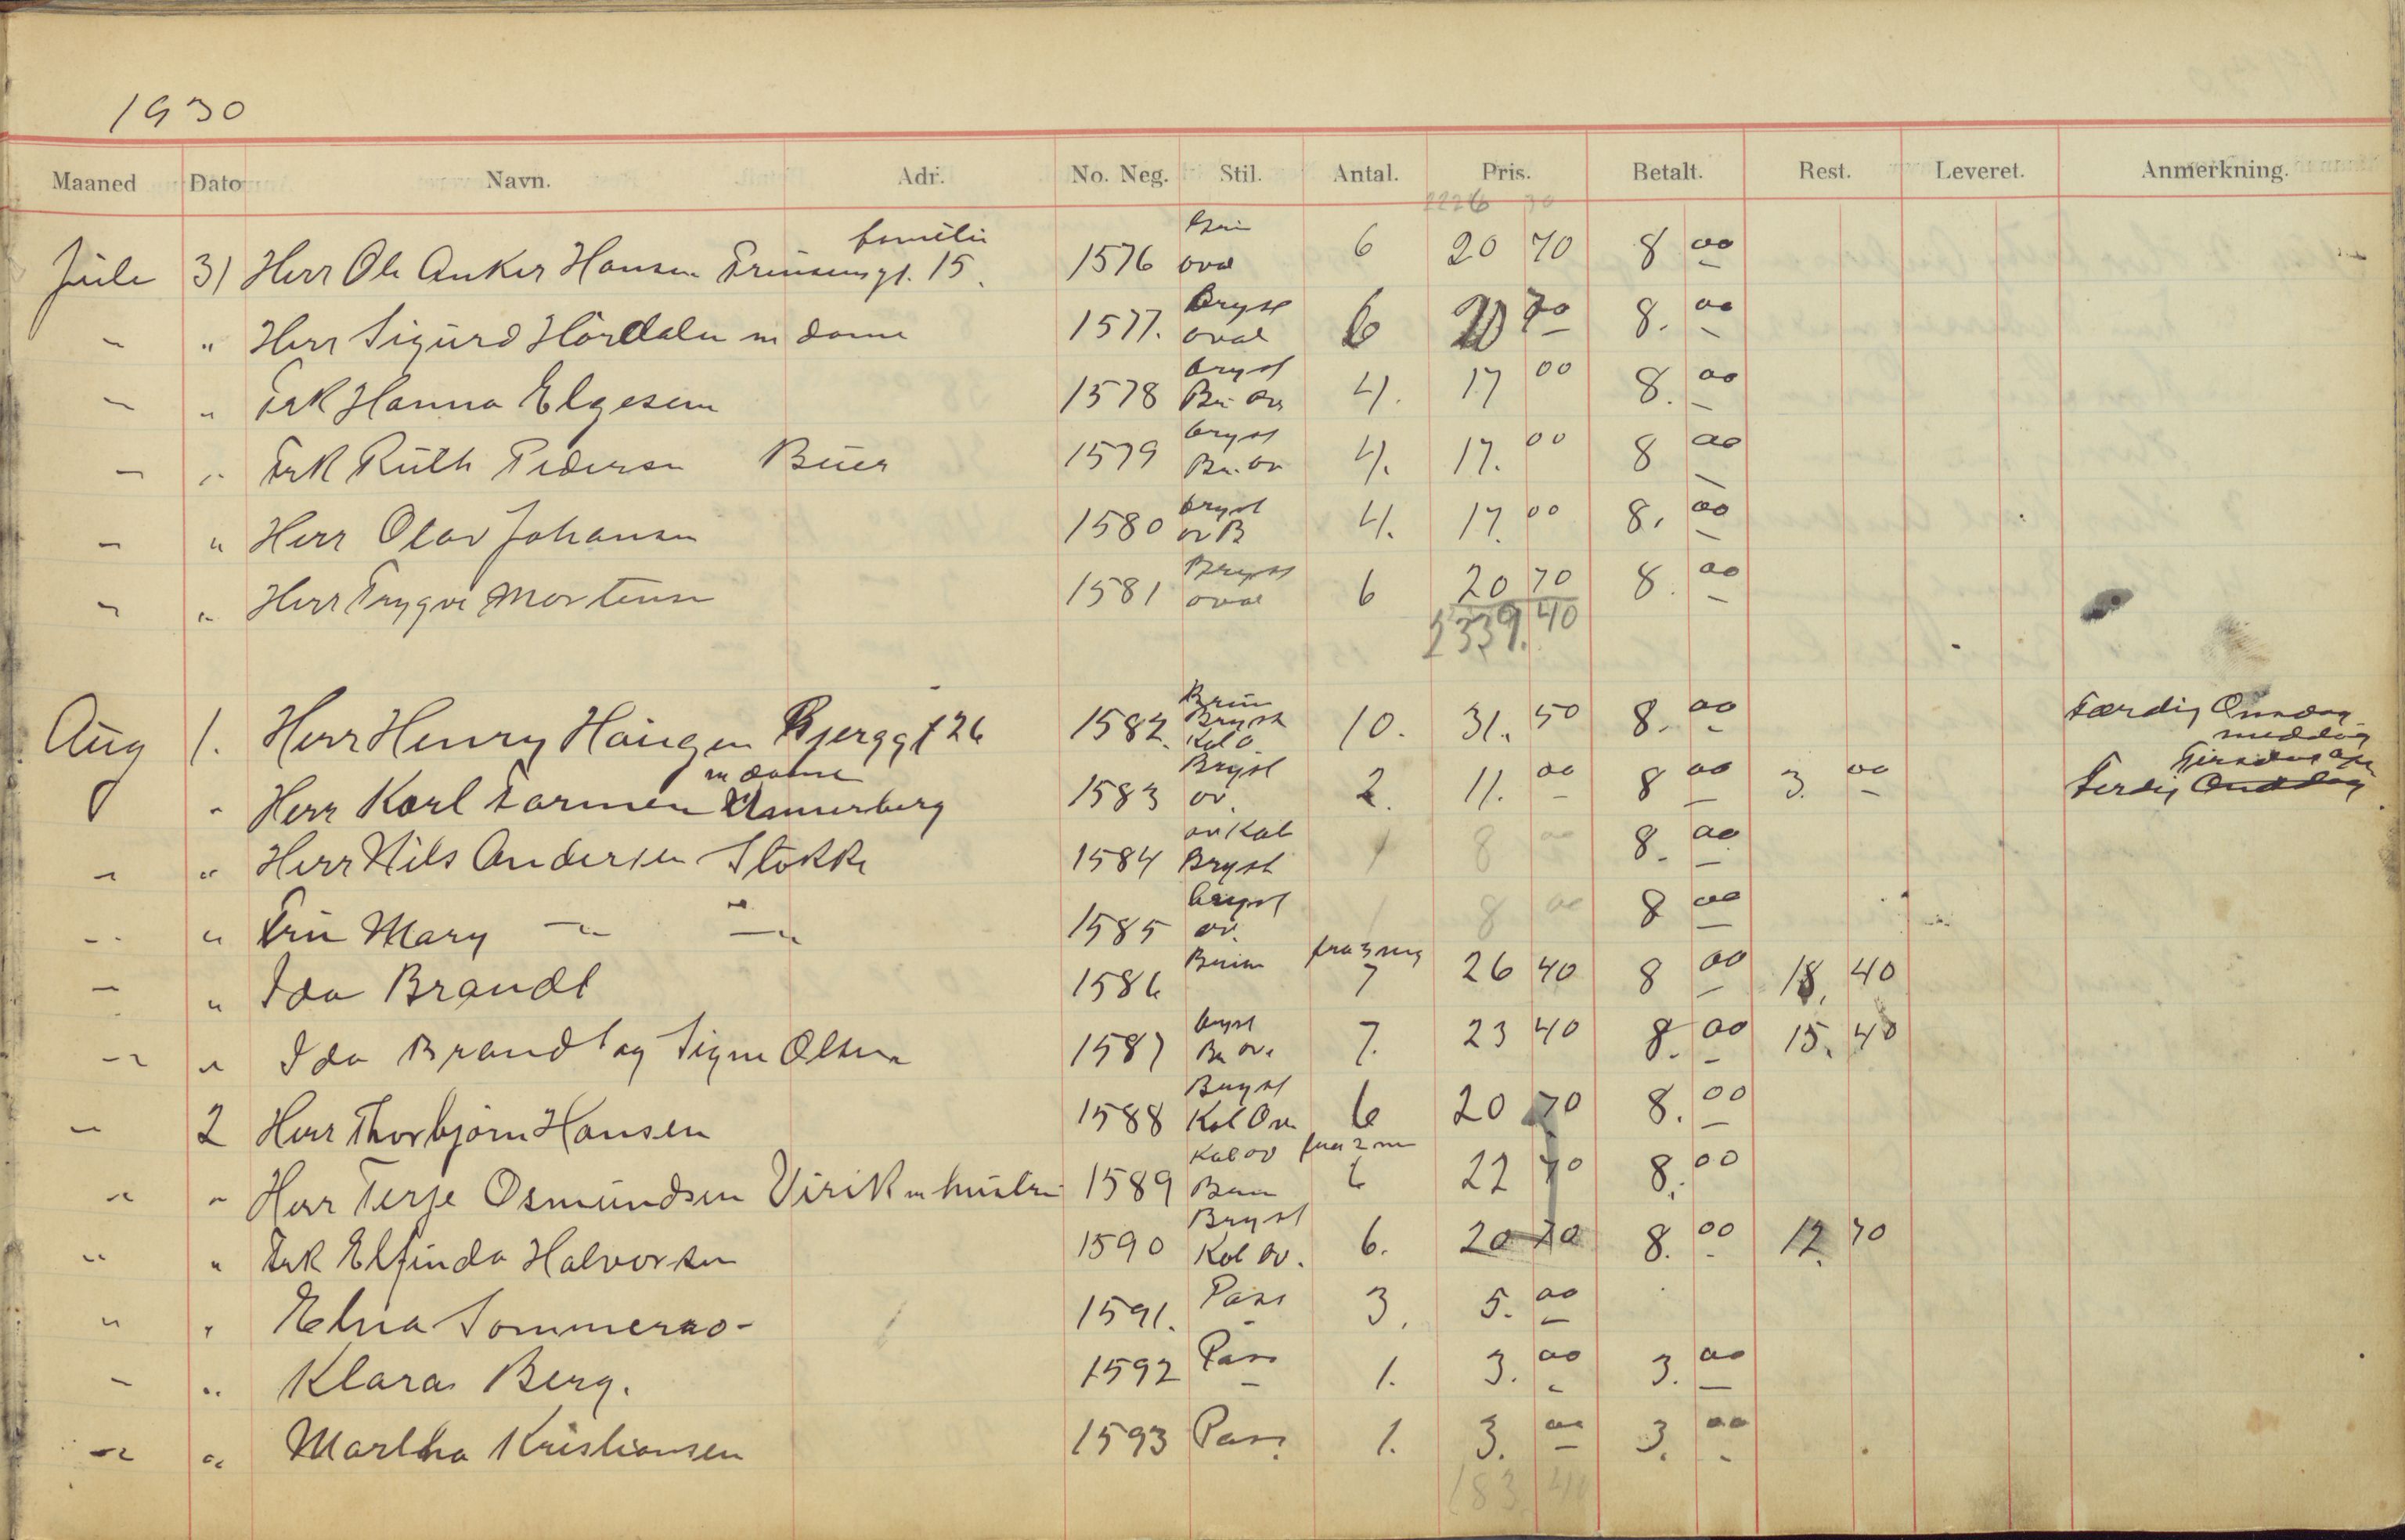 1930
Maaned Dato Navn. Adr. No. Neg. Stil. Antal. Pris. Betalt. Rest. Leveret. Anmerkning.
2226 30
familie
Juli 31 Herr Ole Anker Hansen Prinsensgt. 15. 1576 oval 6 20 70 8 00
— " Herr Sigurd Hördalen m dame 1577. Bryst oval 6 20 70 8. 00
— " Frk Hanna Elgesem 1578 bryst Br. ov 4. 17 00 8. 00
— " Frk Ruth Pedersen Buer 1579 bryst Br. ov 4. 17. 00 8 00
— " Herr Olav Johansen 1580 bryst ov B 4. 17. 00 8. 00
— " Herr Trygve Mortensen 1581 Bryst oval 6 20 70 8. 00
2339. 40
Aug 1. Herr Henry Haugen Bjerggt 26 1582. Brun Bryst Kol o. 10. 31. 50 8. 00 Færdig Onsdag middag
" Herr Karl Farmen m dame 1583 Bryst ov. 2. 11. 00 8 00 3. 00 Ferdig
— " Herr Nils Andersen Stokke 1584 ov Kol Bryst 1 8 00 8. 00
— " Fru Mary — " — " 1585 bryst ov. 1 8 00 8 00
— " Ida Brandt 1586 Brun fra 3 neg 7 26 40 8 00 18. 40
— " Ida Brandt og Signe Olsen 1587 bryst Br ov. 7. 23 40 8. 00 15. 40
— 2 Herr Thorbjörn Hansen 1588 Bryst Kol Ov 6 20 70 8. 00
" " Herr Terje Osmundsen Virik m hustru 1589 Kol ov Brun fra 2 6 22 70 8. 00
" " Frk Elfinda Halvorsen 1590 Bryst Kol ov. 6. 20 70 8. 00 12. 70
" " Elna Sommerro- 1591. Pass 3. 5. 00
— " Klara Berg. 1592 Pass 1. 3. 00 3. 00
" " Martha Kristiansen 1593 Pass. 1. 3. 00 3. 00
183 40